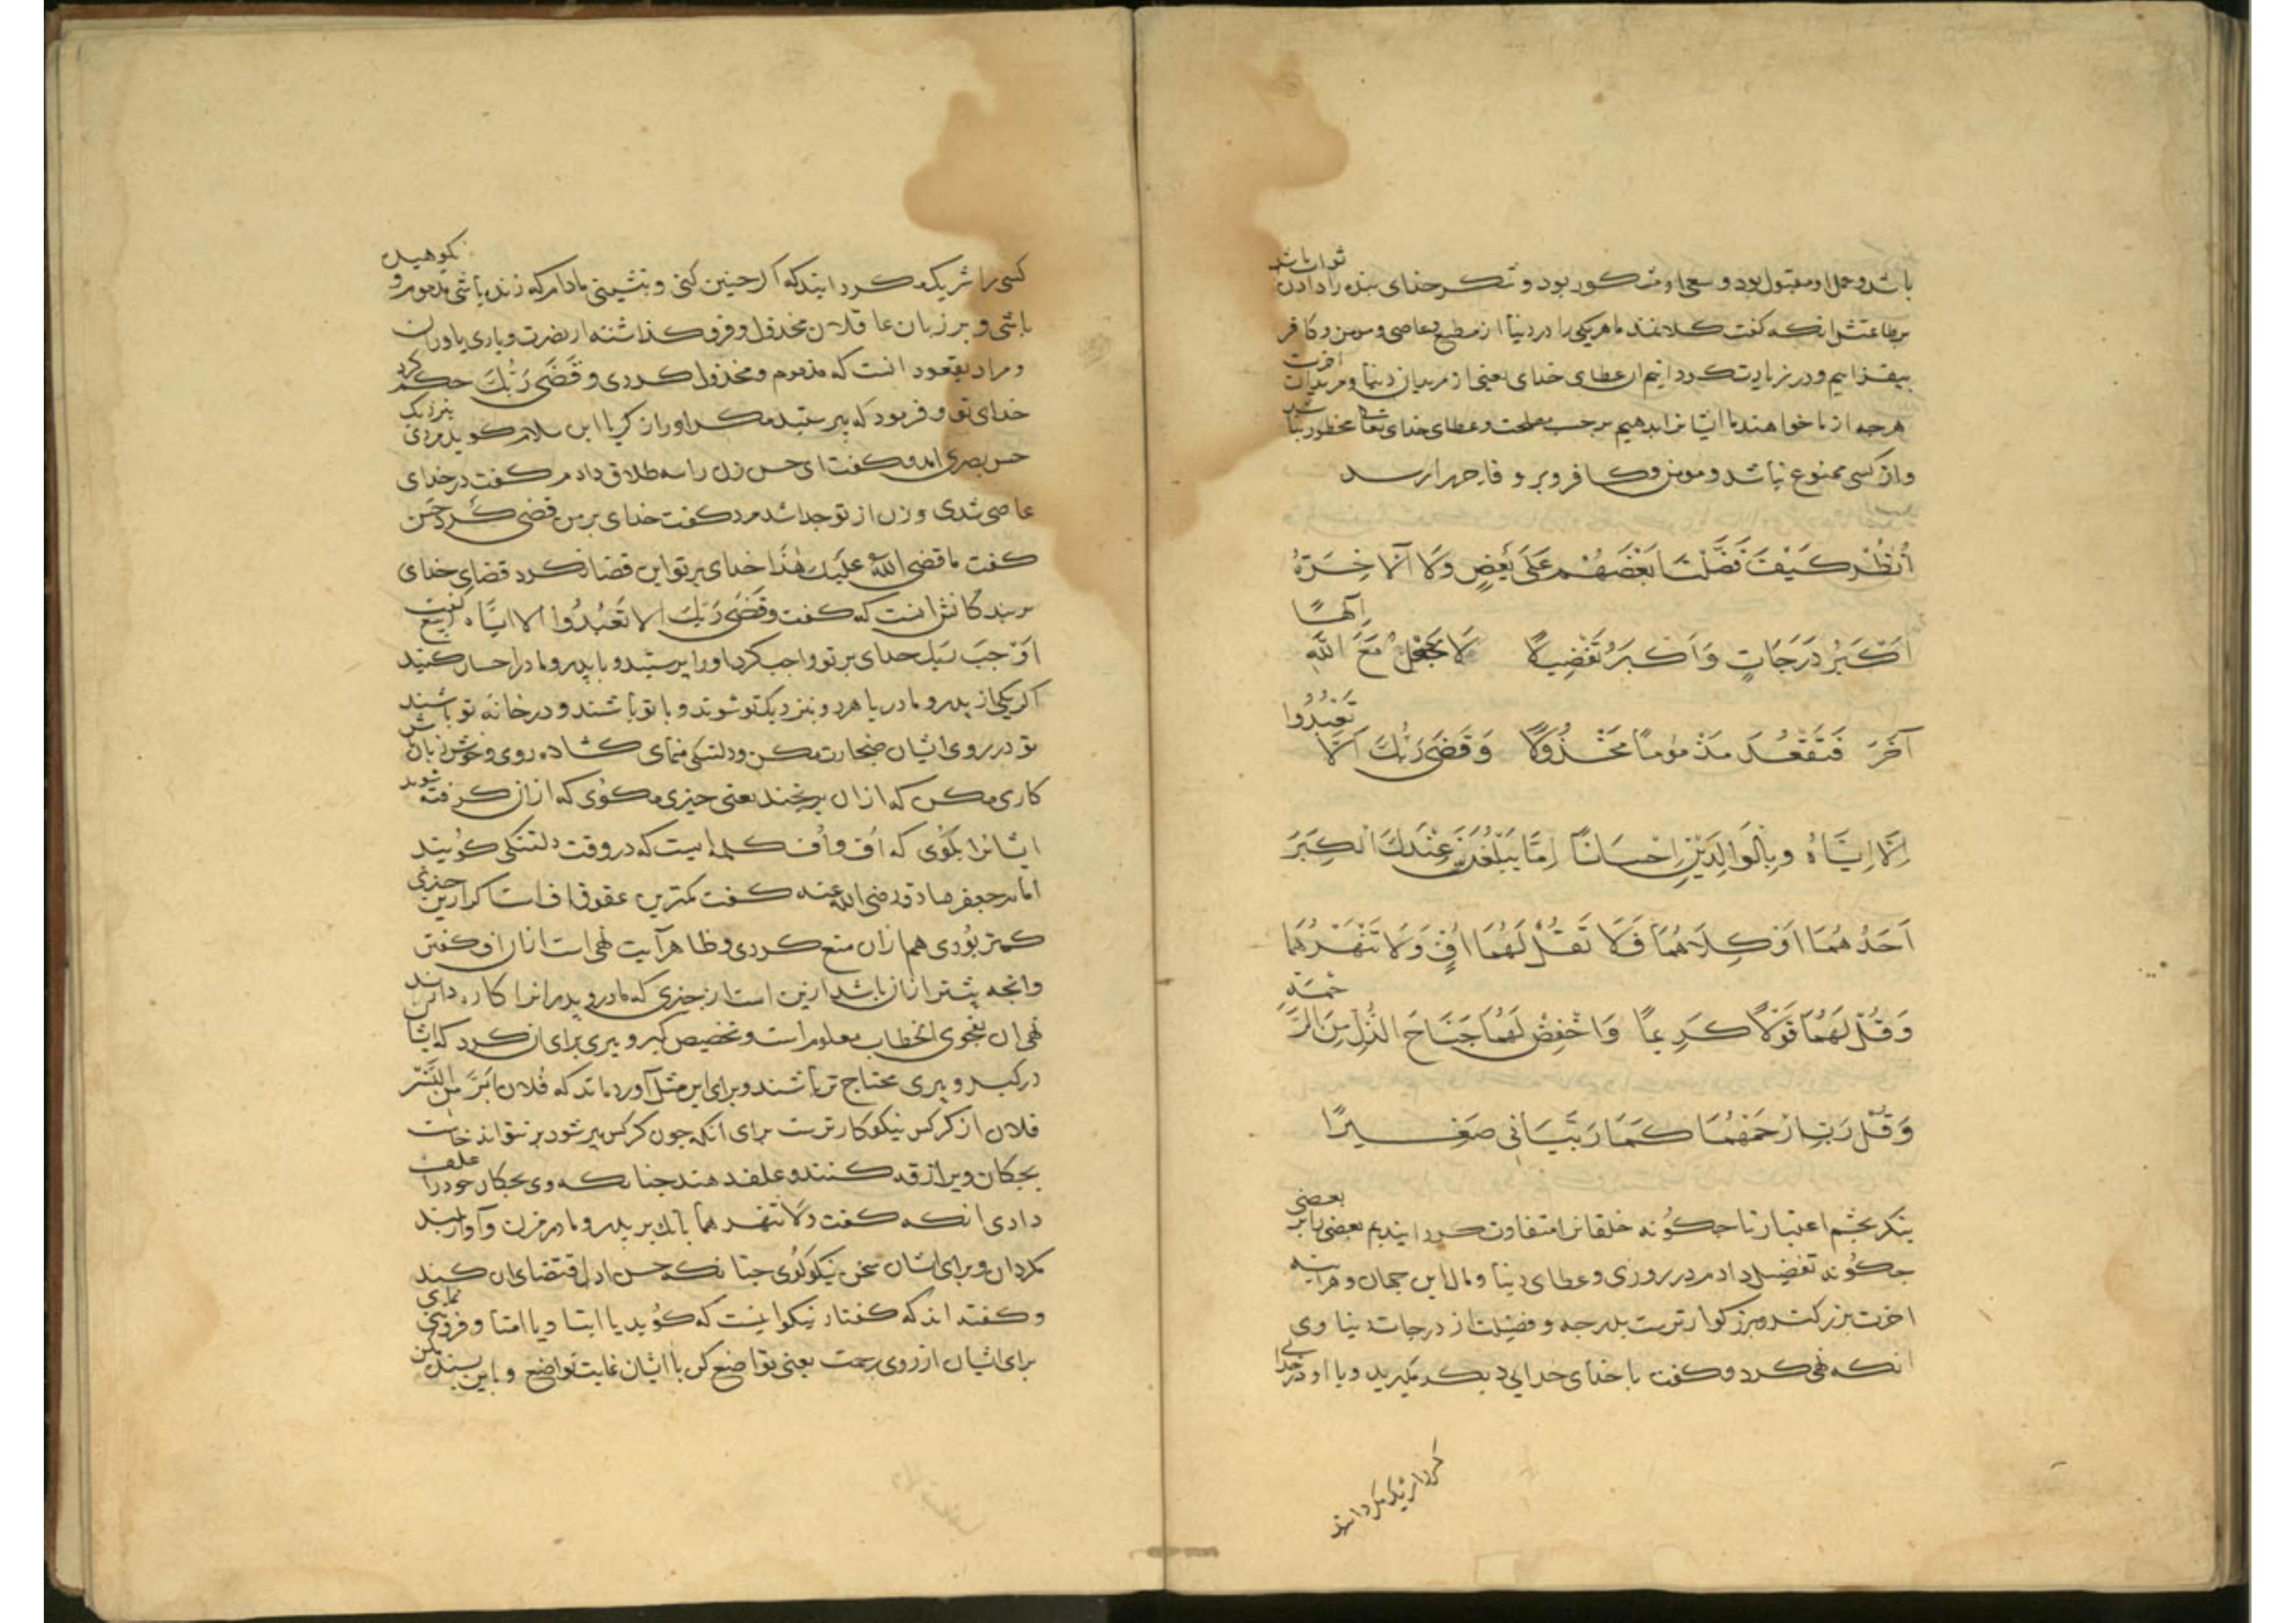 باشد و عمل او مقبول بود و سعی او مشکور بود و شکر خدای بنده را دادن ثواب باشد
بر طاعتش انکه کفت کلا نمد ما هر یکی را در دنیا از مطیع و عاصی و مومن و کافر
بیفزاییم و در زیادت کردانیم از عطای خدای یعنی از مریدان دنیا و مریدان اخرت
هرچه از ما خواهند ما ایشانرا بدهیم بر حسب مصلحت و عطای خدای تعالی محظور نباشد
و از کسی ممنوع نباشد و مومن و کافر و بر و فاجر را رسد
اُنْظُرْ كَيْفَ فَضَّلْنَا بَعْضَهُمْ عَلَى بَعْضٍ وَلَا آلْآخِرَةُ
اَكْبَرُ دَرَجَاتٍ وَاَكْبَرُ تَفْضِيلًا لَا تَجْعَلْ مَعَ اللَّهِ اِلَهًا
آخَرَ فَتَقْعُدَ مَذْمُومًا مَخْذُولًا وَقَضَى رَبُّكَ اَلَّا تَعْبُدُوا
اِلَّا اِيَّاهُ وَبِالْوَالِدَيْنِ اِحْسَانًا اِمَّا يَبْلُغَنَّ عِنْدَكَ الْكِبَرَ
اَحَدُهُمَا اَوْ كِلَاهُمَا فَلَا تَقُلْ لَهُمَا اُفٍّ وَلَا تَنْهَرْهُمَا
وَقُلْ لَهُمَا قَوْلًا كَرِيمًا وَاخْفِضْ لَهُمَا جَنَاحَ الذُّلِّ مِنَ الرَّحْمَةِ
وَقُلْ رَبِّ ارْحَمْهُمَا كَمَا رَبَّيَانِي صَغِيرًا
بنکر بچشم اعتبار تا چکونه خلقانرا متفاوت کردانیدیم بعضی را بر بعضی
چکونه تفضیل دادم در روزی و عطای دنیا و مال این جهان و هراینه
اخرت بزرکتر و بزرکوارترست بدرجه و فضیلت از درجات دنیاوی
انکه نهی کرد و کفت با خدای خدایی دیکر مکیرید و با او در خدایی
کسی را شریک مکردانید که اکر چنین کنی و بنشینی مادام که زنده باشی مذموم و نکوهیده
باشی و بر زبان عاقلان مخذول و فروکذاشته از نصرت و یاری یاوران
و مراد بقعود انست که مذموم و مخذول کردی و قَضَى رَبُّكَ حکم کرد
خدای تو و فرمود که مپرستید مکر او را زکریا ابن سلام کوید مردی بنزدیک
حسن بصری امد و کفت ای حسن زن را سه طلاق دادم کفت در خدای
عاصی شدی و زن از تو جدا شد مرد کفت خدای بر من قضی کرد حسن
کفت ما قضی الله علیک هذا خدای بر تو این قضا نکرد قضای خدای
بر بندکانش انست که کفت وَقَضَى رَبُّكَ اَلا تَعْبُدُوا اِلا اِيَّاه ربیع کفت
اَوْجَبَ رَبُّكَ خدای بر تو واجب کرد او را پرستید و با پدر و مادر احسان کنید
اکر یکی از پدر و مادر یا هر دو بنزدیک تو شوند و با تو باشند و در خانه تو باشند
تو در روی ایشان ضجارت مکن و دلتنکی منمای کشاده روی و خوش زبان باش
کاری مکن که از ان برنجند یعنی چیزی مکوی که از ان کرفته شوند
ایشانرا بکوی که اُف و اُف کلمه ایست که در وقت دلتنکی کویند
امام جعفر صادق رضی الله عنه کفت کمترین عقوق اف است اکر ازین چیزی
کمتر بودی هم از ان منع کردی و ظاهر آیت نهی است از ان اف کفتن
و انچه بیشتر از ان باشد ازین است از چیزی که مادر و پدر انرا کاره باشند
نهی ان بفحوی الخطاب معلوم است و تخصیص کبر و پیری برای ان کرد که ایشان
در کبر و پیری محتاج تر باشند و برای این مثل آورده اند که فُلان اَبَرُّ مِنَ النَّسْر
فلان از کرکس نیکوکارترست برای انکه چون کرکس پیر شود بر نتواند خاست
بچکان ویرا زقه کنند و علف دهند چنانکه وی بچکان خود را علف
دادی انکه کفت ولا تنهرهما بانک بر پدر و مادر مزن و آواز بلند
مکردان و برای ایشان سخن نیکو کوی چنانکه حسن ادب اقتضای ان کند
و کفته اند که کفتار نیکو اینست که کوید یا ابتا و یا امتا و فروتنی نمای
برای ایشان از روی رحمت یعنی تواضع کن با ایشان غایت تواضع